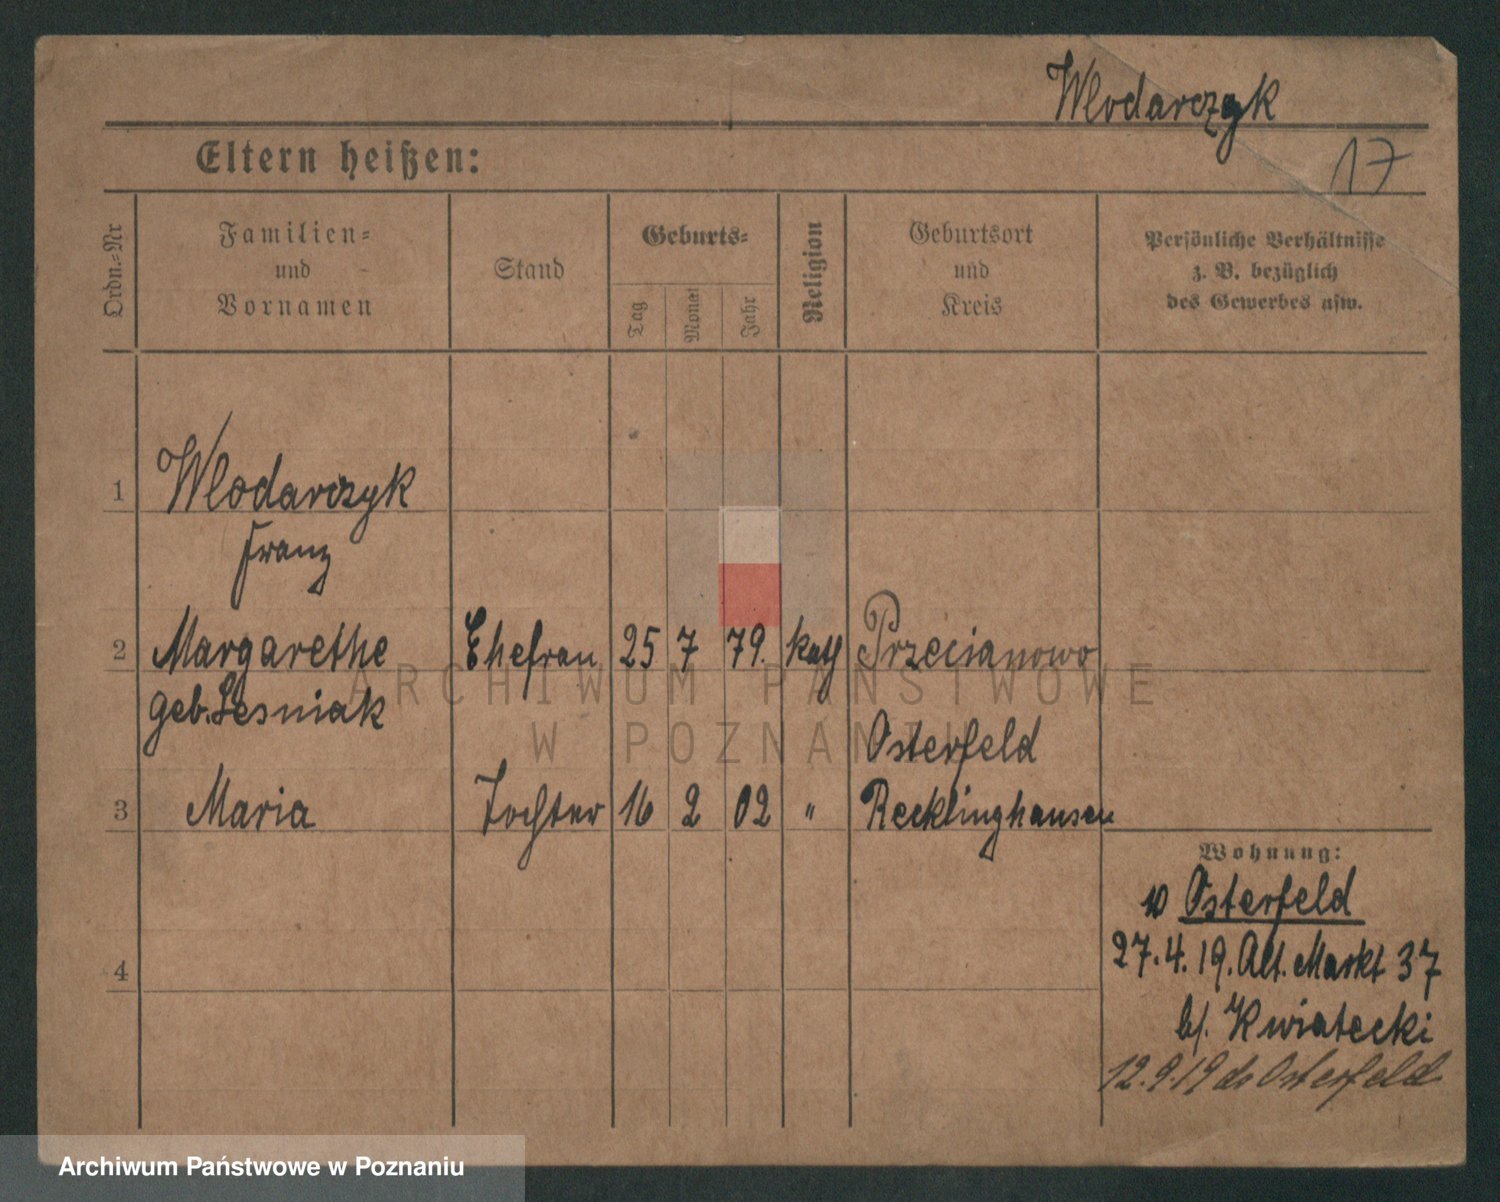 Wlodarczyk
Eltern heißen:
17
Ordn.-Nr
Familien-
und
Vornamen
Stand
Geburts-
Tag
Monat
Jahr
Religion
Geburtsort
und
Kreis
Persönliche Verhältnisse
z. B. bezüglich
des Gewerbes usw.
1 Wlodarczyk
Franz
2 Margarethe Ehefrau 25 7 79. kath Przecianowo
geb. Lesniak
Osterfeld
3 Maria Tochter 16 2 02 " Recklinghausen
Wohnung:
Osterfeld
27.4.19. Alt. Markt 37
b/. Kwiatecki
4
12.9.19 do Osterfeld
ARCHIWUM PAŃSTWOWE
W POZNANIU
Archiwum Państwowe w Poznaniu